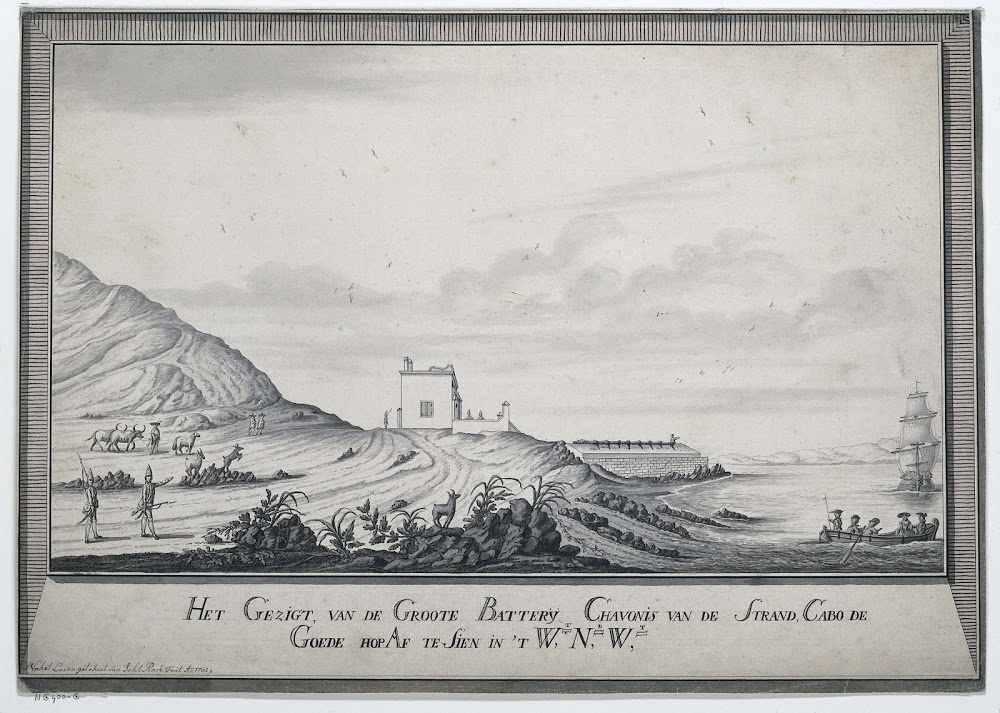 HET GEZIGT, VAN DE GROOTE BATTERY CHAVONIS VAN DE STRAND, CABO DE
GOEDE HOP AF TE SIEN IN 'T W, N, W,
Na het Leeven getekent van Joh: Rach Fecit Ao 1762,
NG 400-G